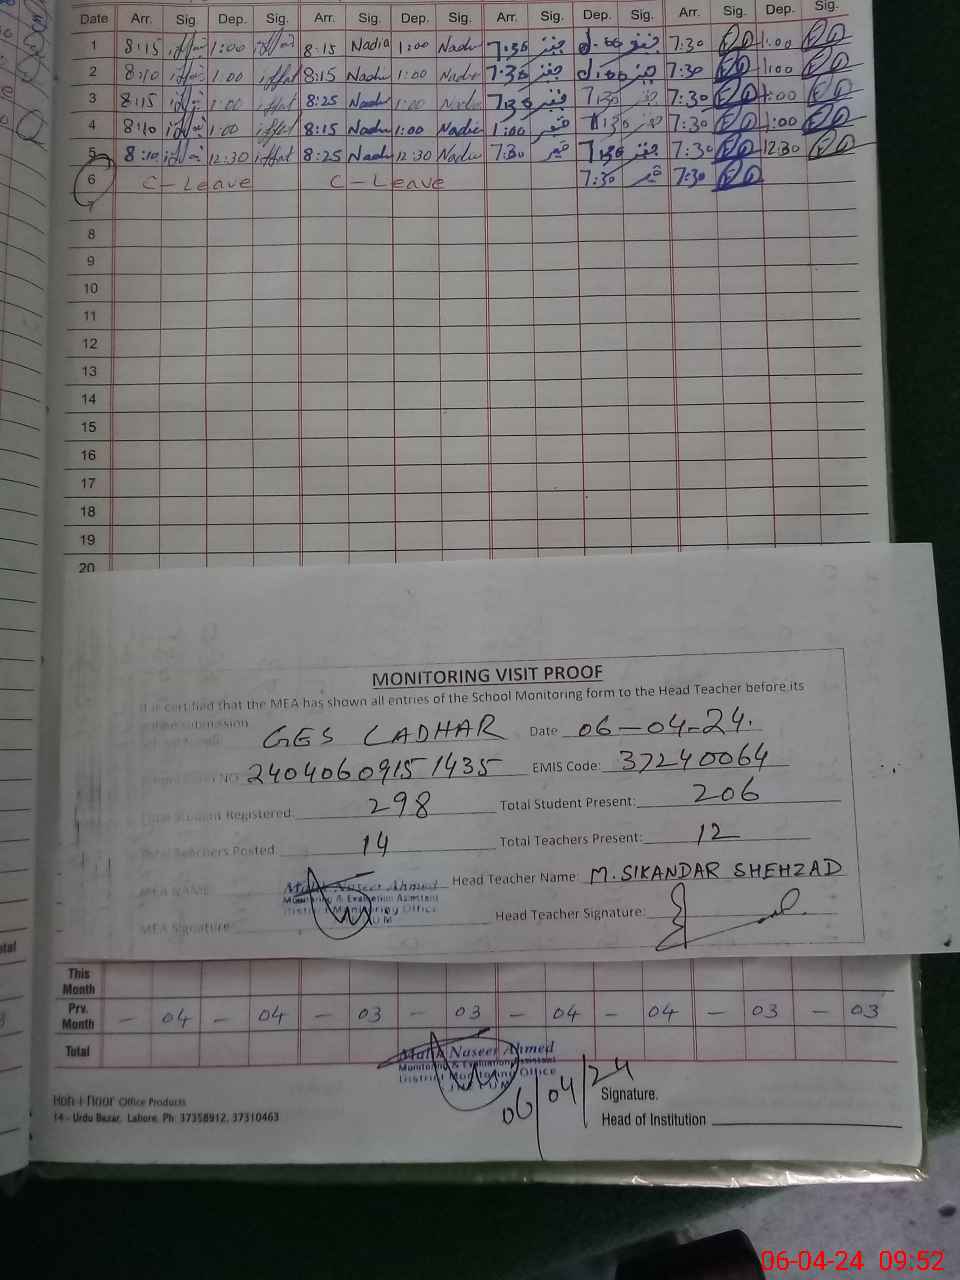 Date Arr. Sig. Dep. Sig. Arr. Sig. Dep. Sig. Arr. Sig. Dep. Sig. Arr. Sig. Dep. Sig.
1 8:15 1:00 8:15 Nadia 1:00 7:30 1:00
2 8:10 1:00 8:15 1:00 7:30 7:30 1:00
3 8:15 1:00 8:25 1:00 7:30 7:30 7:30 1:00
4 8:10 1:00 8:15 1:00 Nadia 1:00 7:30 7:30 1:00
5 8:10 12:30 iffat 8:25 12:30 7:30 7:30 7:30 12:30
6 C-Leave C-Leave 7:30 7:30
7
8
9
10
11
12
13
14
15
16
17
18
19
20
MONITORING VISIT PROOF
It is certified that the MEA has shown all entries of the School Monitoring form to the Head Teacher before its
submission
GES LADHAR Date 06-04-24.
NO. 24040609151435 EMIS Code: 37240064
Total Student Registered: 298 Total Student Present: 206
Total Teachers Posted 14 Total Teachers Present: 12
MEA NAME Malik Naseer Ahmed Head Teacher Name: M. SIKANDAR SHEHZAD
Monitoring & Evaluation Assistant
District Monitoring Office
MEA Signature Head Teacher Signature:
This Month
Prv. Month – 04 – 04 – 03 – 03 – 04 – 04 – 03 – 03
Total
Malik Naseer Ahmed
Monitoring & Evaluation Assistant
District Monitoring Office
06/04/24
Signature.
Head of Institution
Koh-i-Noor Office Products
14 - Urdu Bazar, Lahore. Ph: 37358912, 37310463
06-04-24 09:52